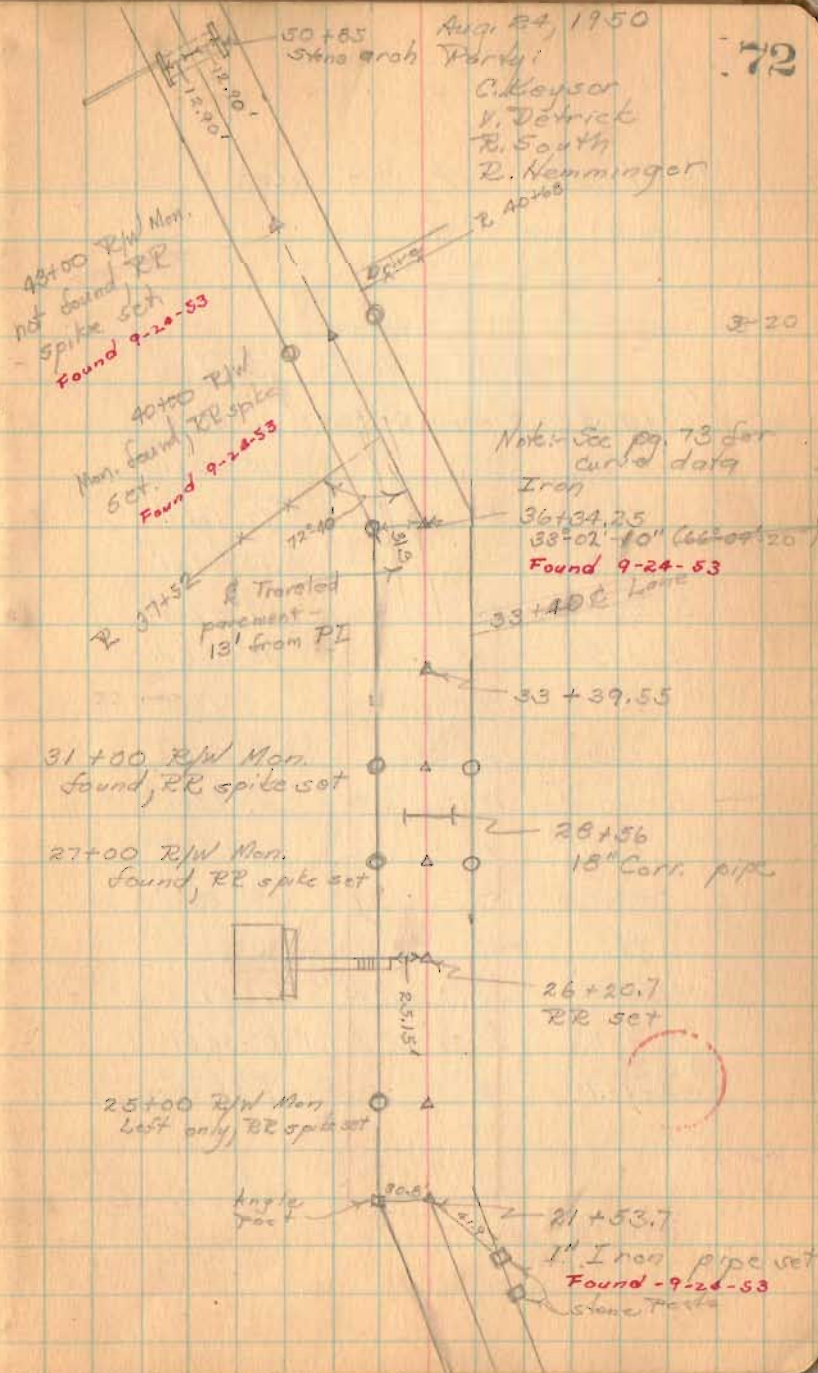 72
Aug. 24, 1950
Party:
C. Keysor
V. Detrick
R. South
R. Hemminger
50+85
Stone arch
12.90'
12.90'
R 40+68
Drive
43+00 R/W Mon.
not found, RR
spike set
Found 9-24-53
40+00 R/W
Mon. found, RR spike
set.
Found 9-24-53
Note:- See pg. 73 for
curve data
Iron
36+34.25
33°-02'-10" (66°-04'-20")
Found 9-24-53
72°40'
31.3
R 37+52
℄ Traveled
pavement -
13' from PI
33+40 ℄ Lane
33+39.55
31+00 R/W Mon.
found, RR spike set
28+56
18" Corr. pipe
27+00 R/W Mon.
found, RR spike set
26+20.7
RR set
25.15'
25+00 R/W Mon
Left only, RR spike set
Angle
Post
30.8'
41.9
21+53.7
1" Iron pipe set
Found -9-24-53
stone Posts